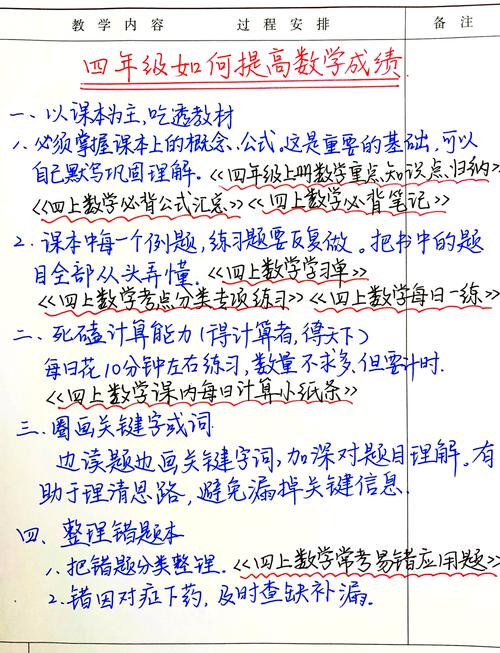 教学内容 过程安排 备注
四年级如何提高数学成绩
一、以课本为主,吃透教材
1、必须掌握课本上的概念、公式。这是重要的基础,可以
自己默写巩固理解。《四年级上册数学重点知识点归纳》
《四上数学必背公式汇总》《四上数学必背笔记》
2、课本中每一个例题,练习题要反复做。把书中的题
目全部从头弄懂。《四上数学学习单》
《四上数学考点分类专项练习》《四上数学每日一练》
二、死磕计算能力(得计算者,得天下)
每日花10分钟左右练习,数量不求多,但要计时.
《四上数学课内每日计算小纸条》
三、圈画关键字或词
边读题边画关键字词,加深对题目理解。有
助于理清思路,避免漏掉关键信息.
四、整理错题本
1、把错题分类整理.《四上数学常考易错应用题》
2.错因对症下药,及时查缺补漏。